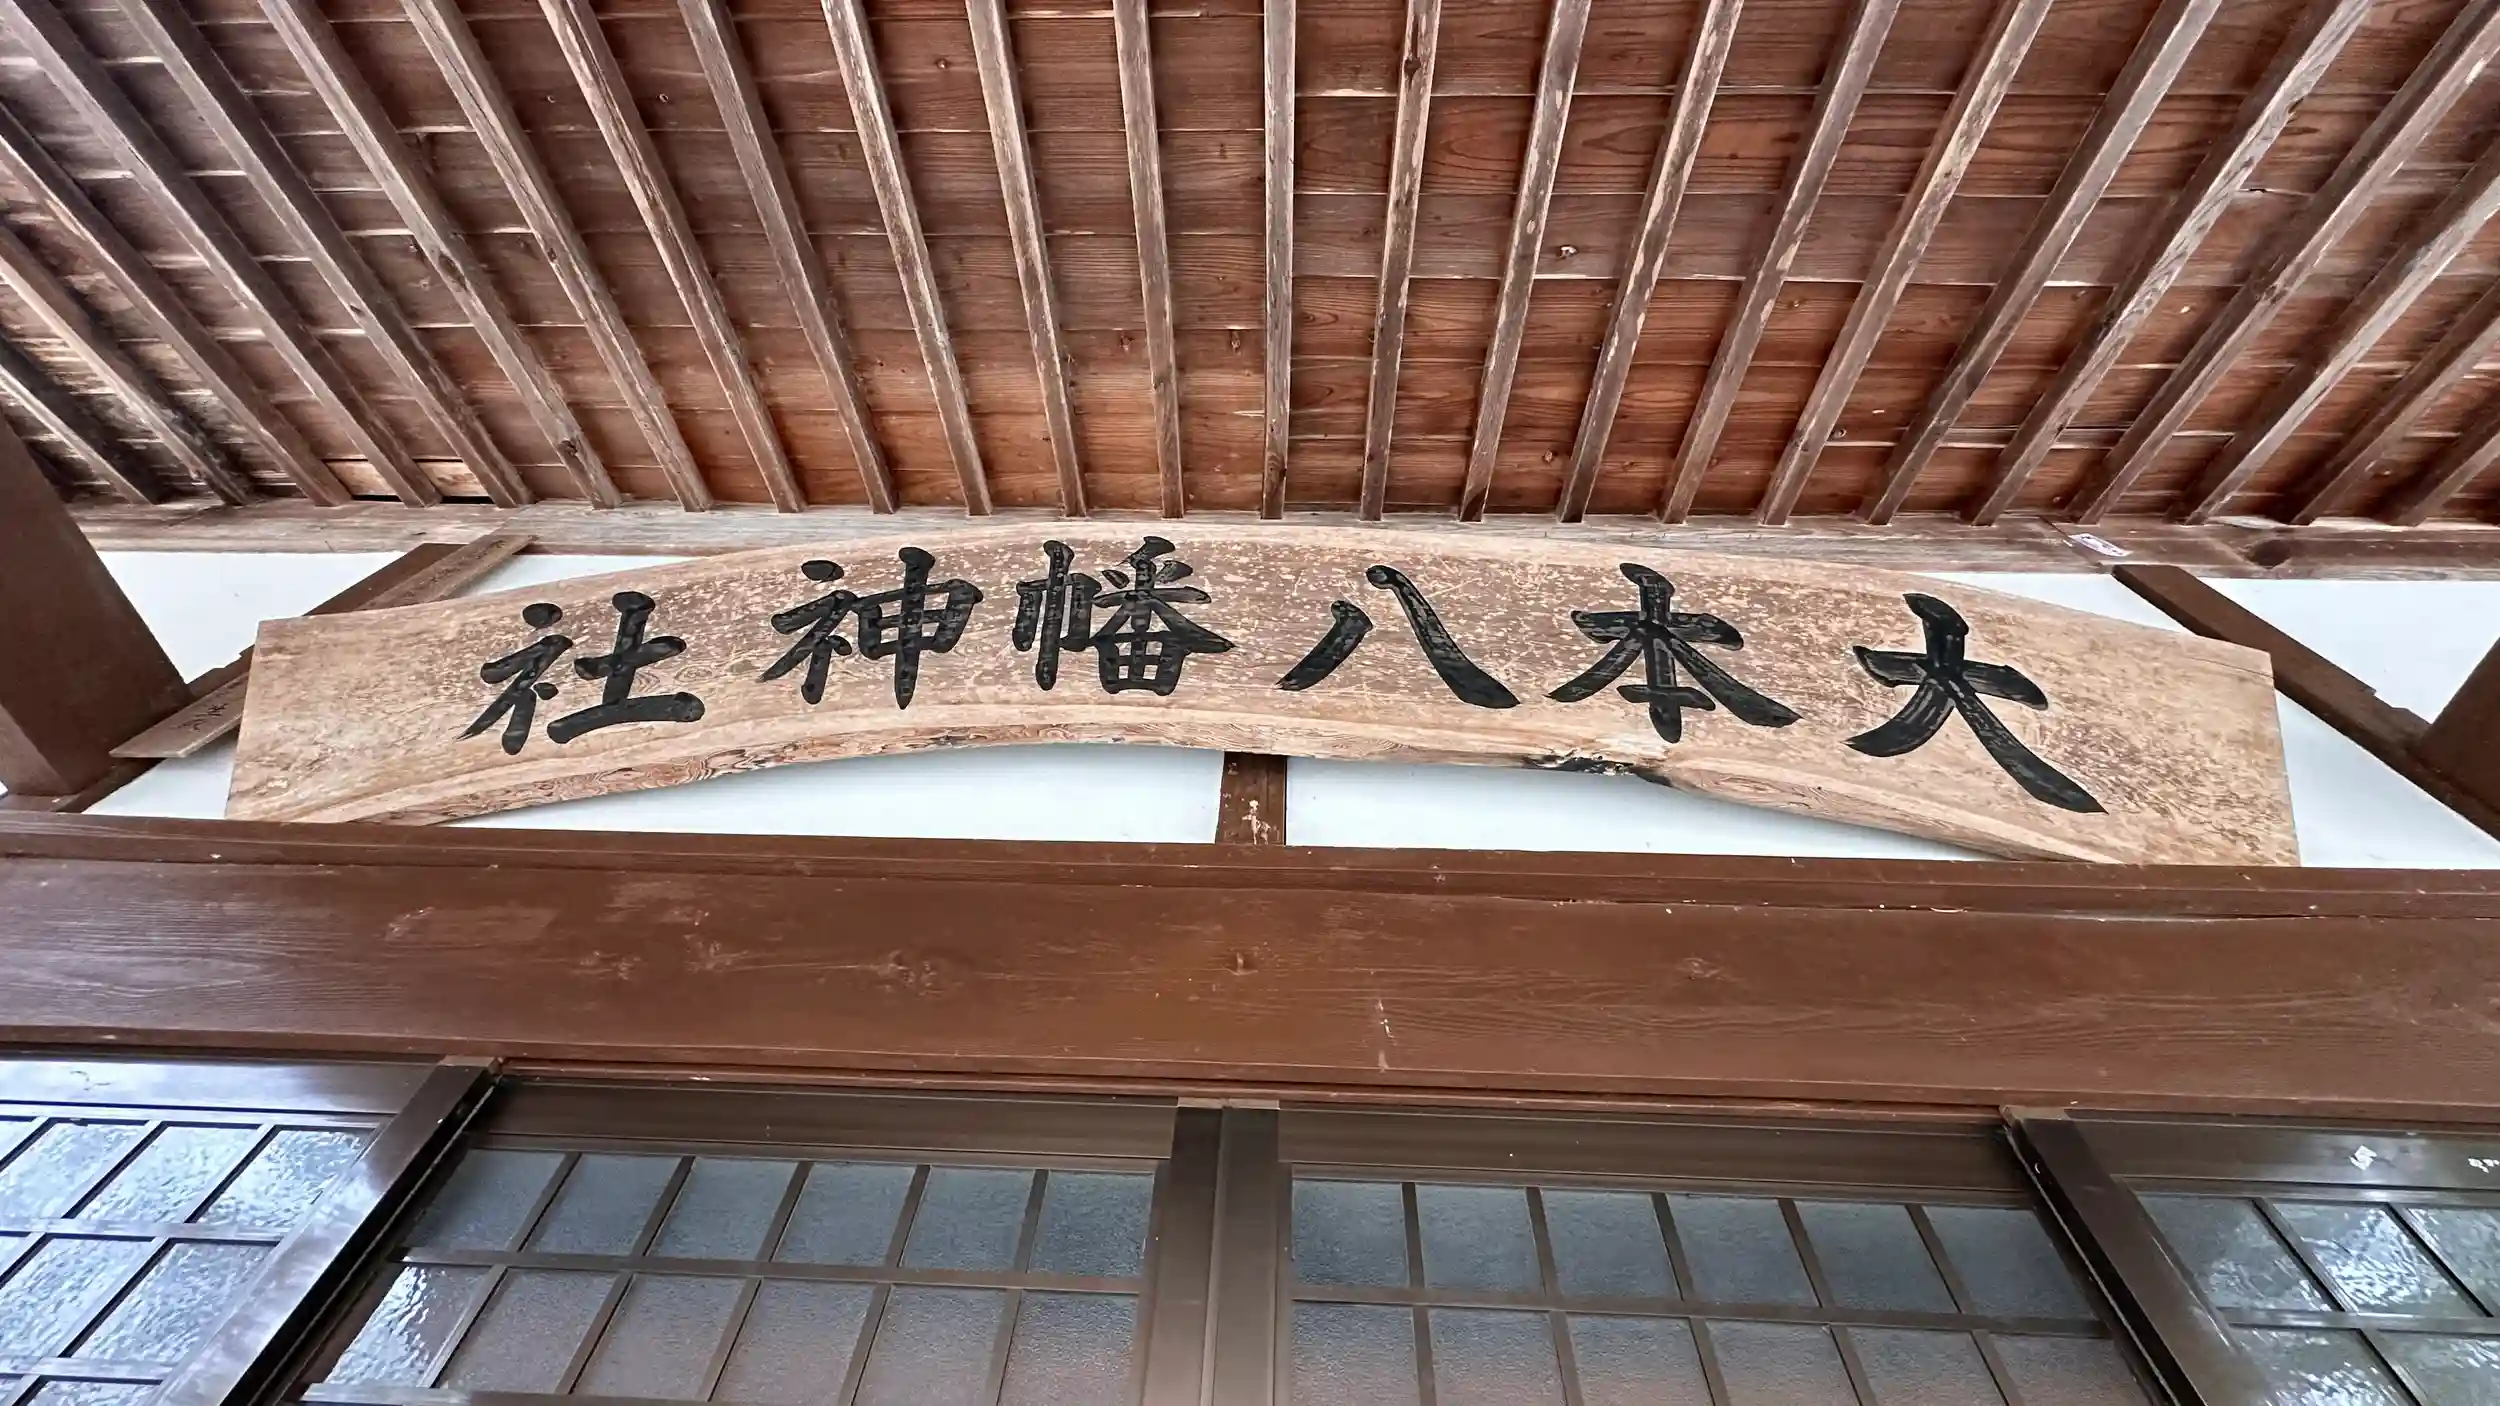 大本八幡神社